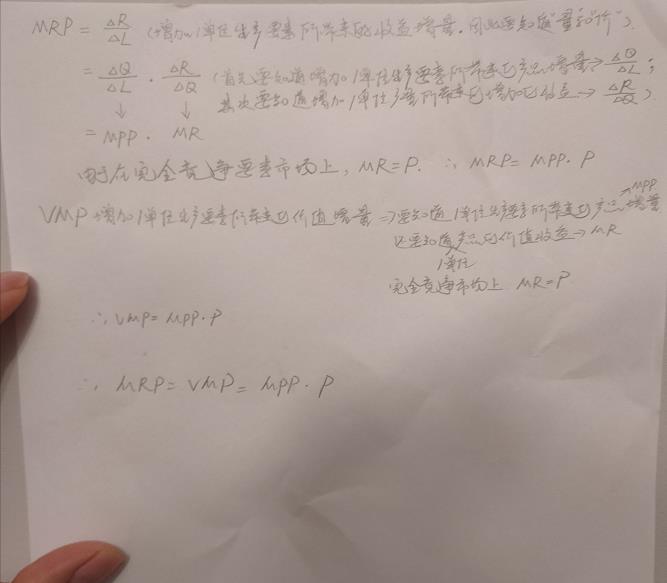 MRP = ΔR/ΔL (增加1单位生产要素所带来的收益增量.因此要知道"量"和"价").
= ΔQ/ΔL · ΔR/ΔQ (首先要知道增加1单位生产要素所带来的产品增量→ΔQ/ΔL;
↓ ↓ 其次要知道增加1单位产量所带来的增加的收益→ΔR/ΔQ)
= MPP · MR
由于在完全竞争要素市场上, MR=P. ∴ MRP= MPP· P
VMP 增加1单位生产要素所带来的价值增量 ⇒要知道1单位生产要素所带来的产品增量→MPP
还要知道1单位产品的价值收益→MR
完全竞争市场上 MR=P
∴ VMP= MPP·P
∴ MRP= VMP= MPP· P